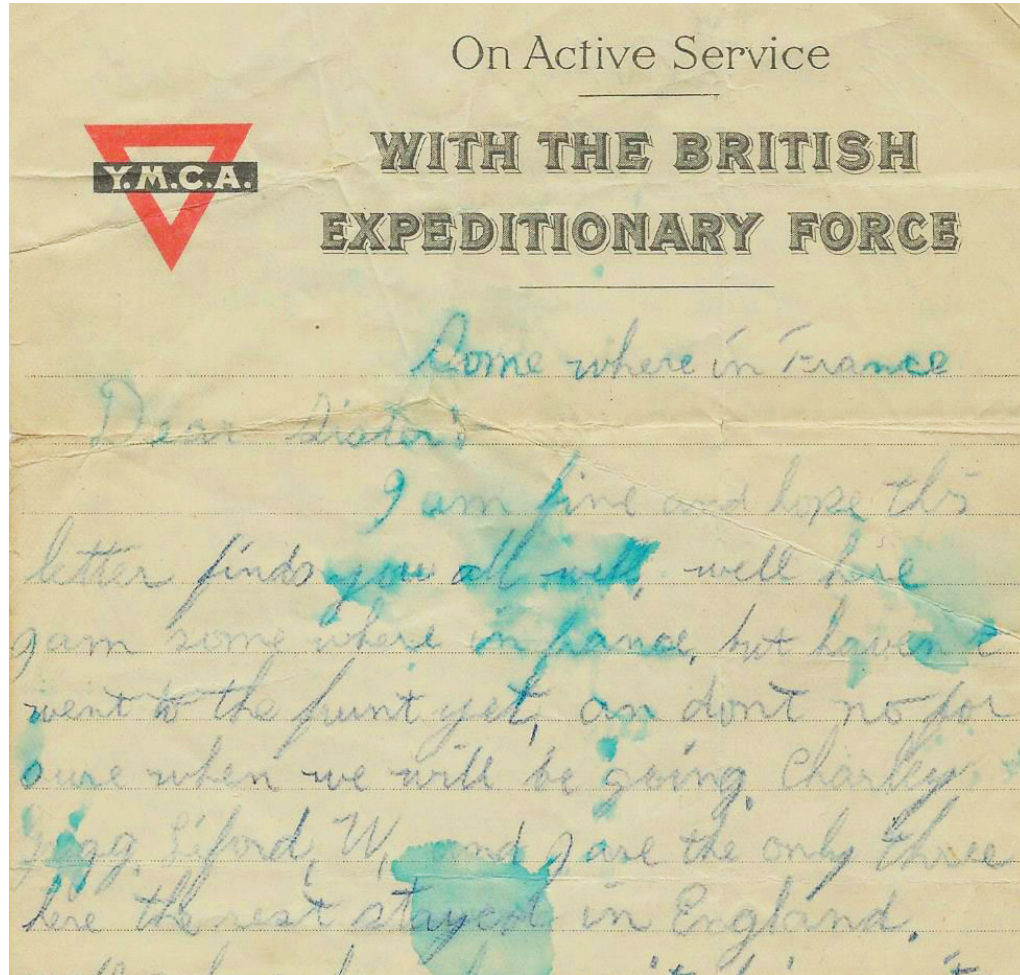 On Active Service
Y.M.C.A.
WITH THE BRITISH
EXPEDITIONARY FORCE
Some where in France
Dear Sister's
I am fine and hope this
letter finds you all well, well here
I am some where in france, but haven't
went to the frunt yet, an dont no for
sure when we will be going, Charley
Gigg, W, and I are the only three
here the rest stayed in England.